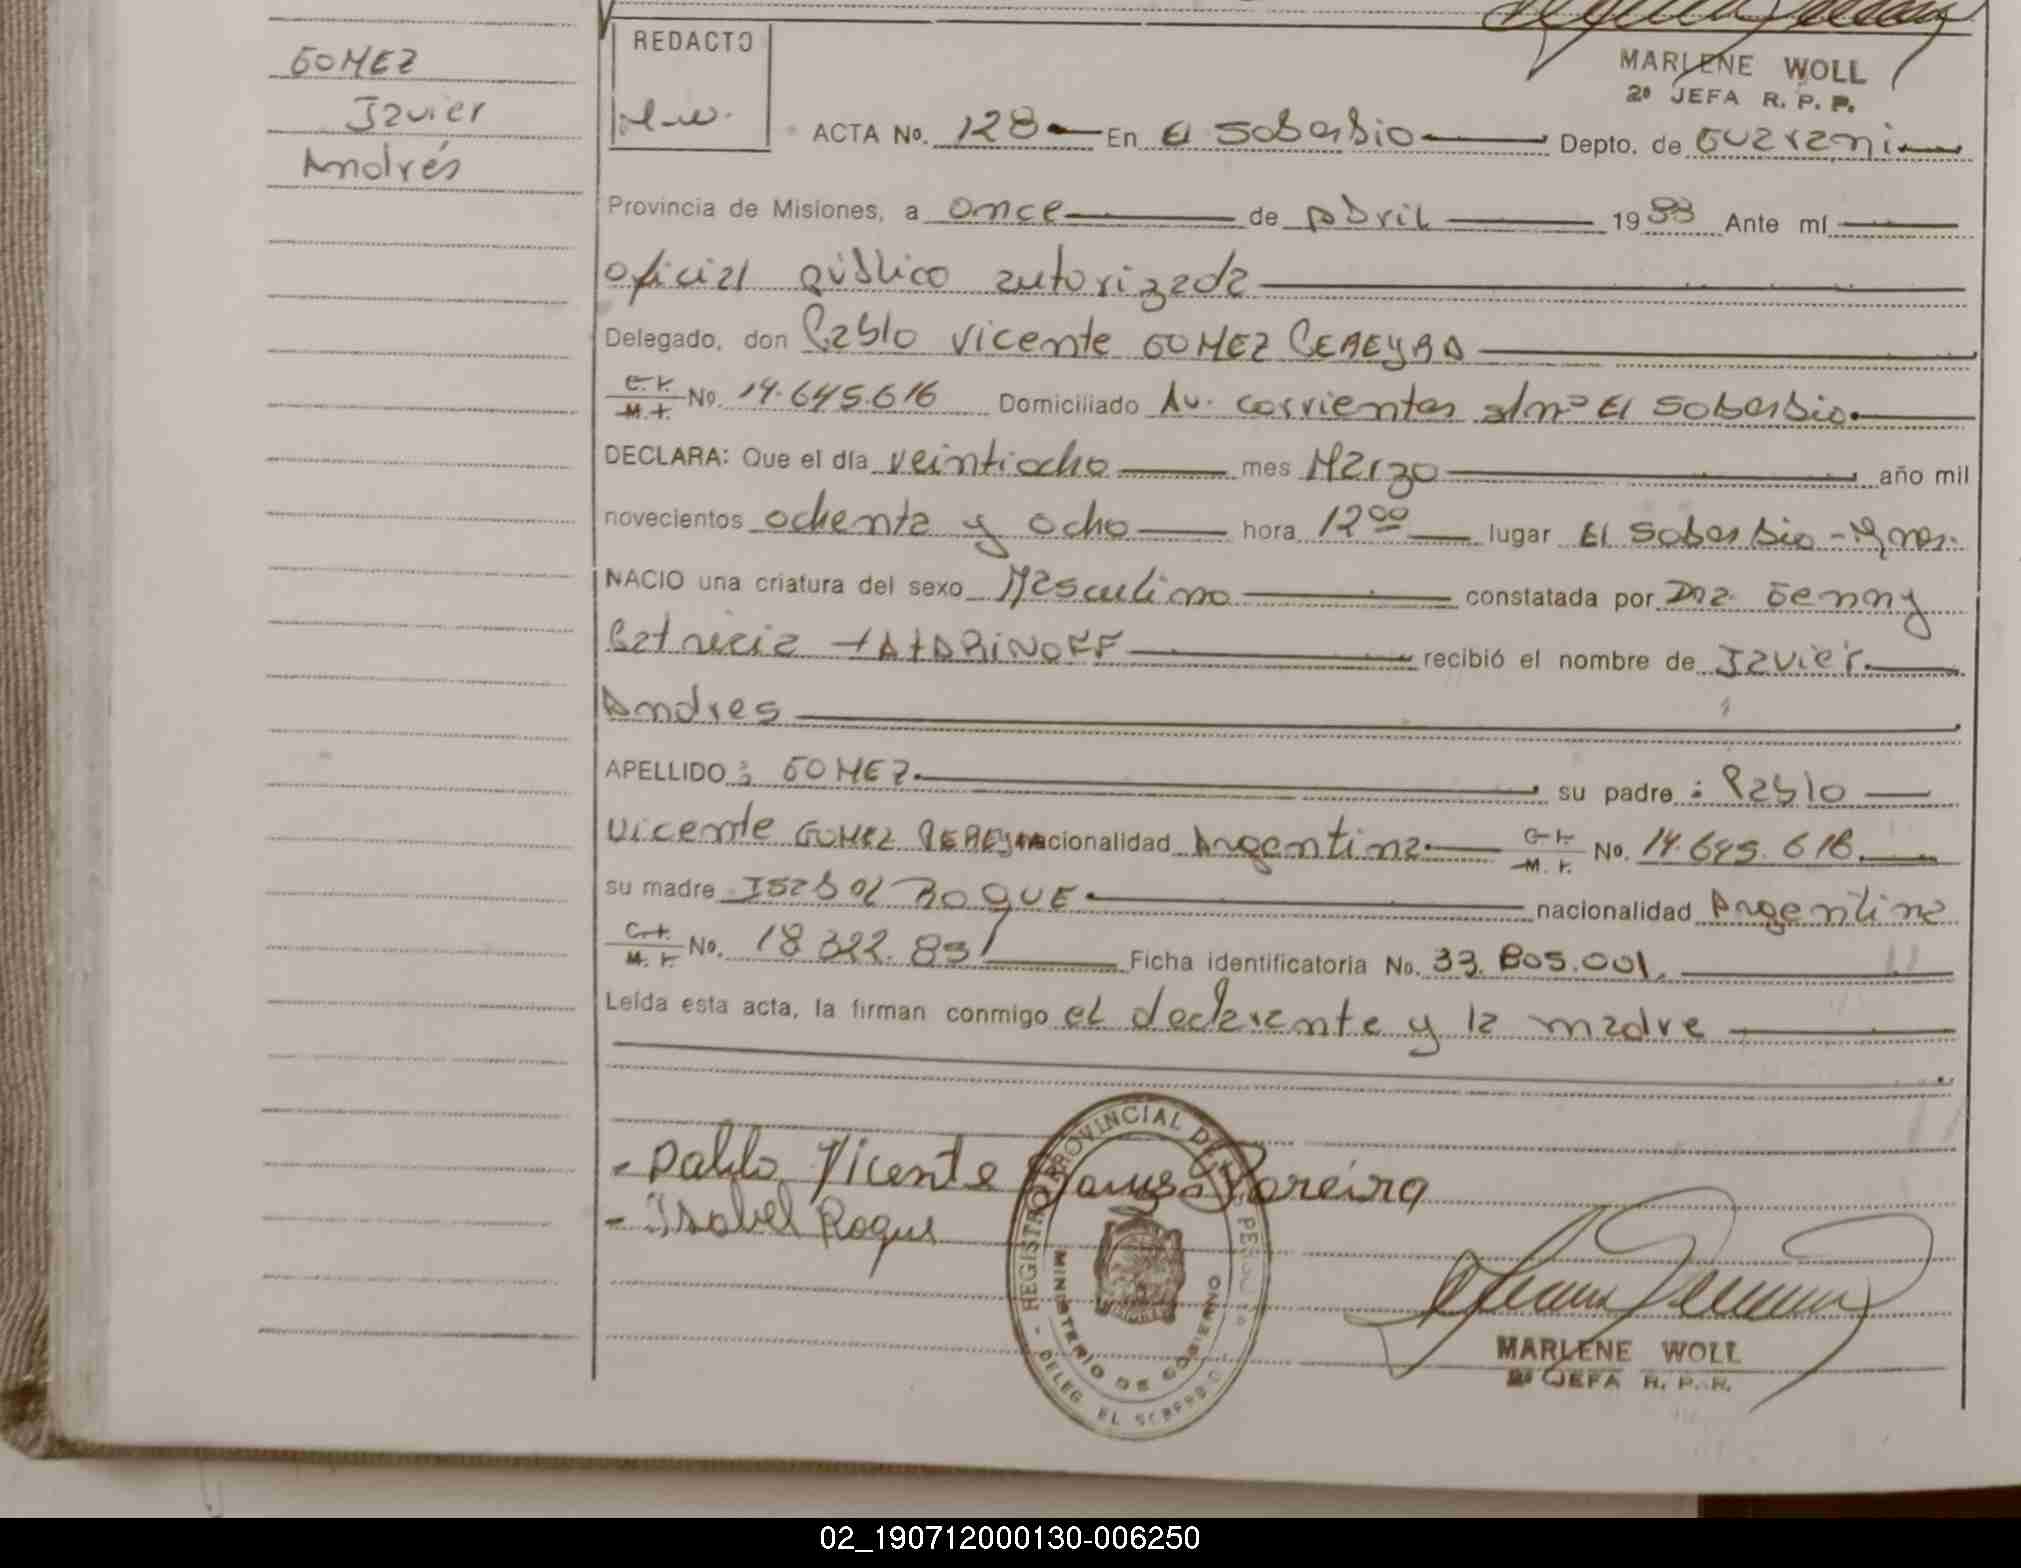 GOMEZ
Javier
Andrés
REDACTO
M-w.
MARLENE WOLL
2º JEFA R. P. P.
ACTA No. 128 En El Soberbio Depto. de Guarani
Provincia de Misiones, a once de Abril 1988 Ante mí
oficial público autorizada
Delegado, don Pablo Vicente GOMEZ PEREYRA
C.I. M.I. No. 14.645.616 Domiciliado Av. Corrientes s/nº El Soberbio
DECLARA: Que el día veintiocho mes Marzo año mil
novecientos ochenta y ocho hora 12⁰⁰ lugar El Soberbio - Mnes.
NACIO una criatura del sexo Masculino constatada por Dra. Genny
Patricia TATARINOFF recibió el nombre de Javier
Andres
APELLIDO : GOMEZ su padre : Pablo
Vicente GOMEZ PEREYRA nacionalidad Argentina C.I. M.I. No. 14.645.616.
su madre Isabel ROQUE nacionalidad Argentina
C.I. M.I. No. 18.322.851 Ficha identificatoria No. 33.805.001.
Leída esta acta, la firman conmigo el declarante y la madre
- Pablo Vicente Gomez Pereira
- Isabel Roque
REGISTRO PROVINCIAL DE
MINISTERIO DE GOBIERNO
DELEG. EL SOBERBIO
MARLENE WOLL
2º JEFA R. P. P.
02_190712000130-006250